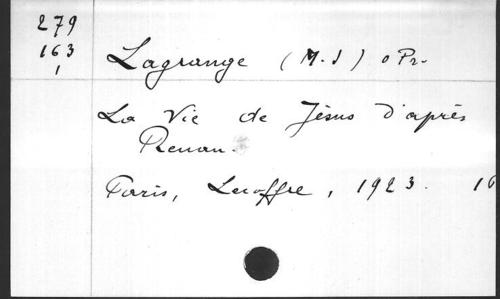 279
163
1
Lagrange (M.J) o Pr.
La Vie de Jésus d'après
Renan.
Paris, Lecoffre, 1923. 16